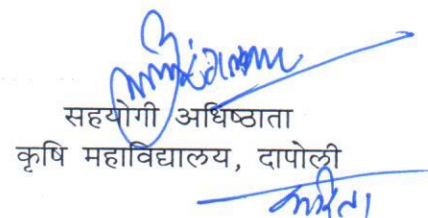 सहयोगी अधिष्ठाता
कृषि महाविद्यालय, दापोली
करिता